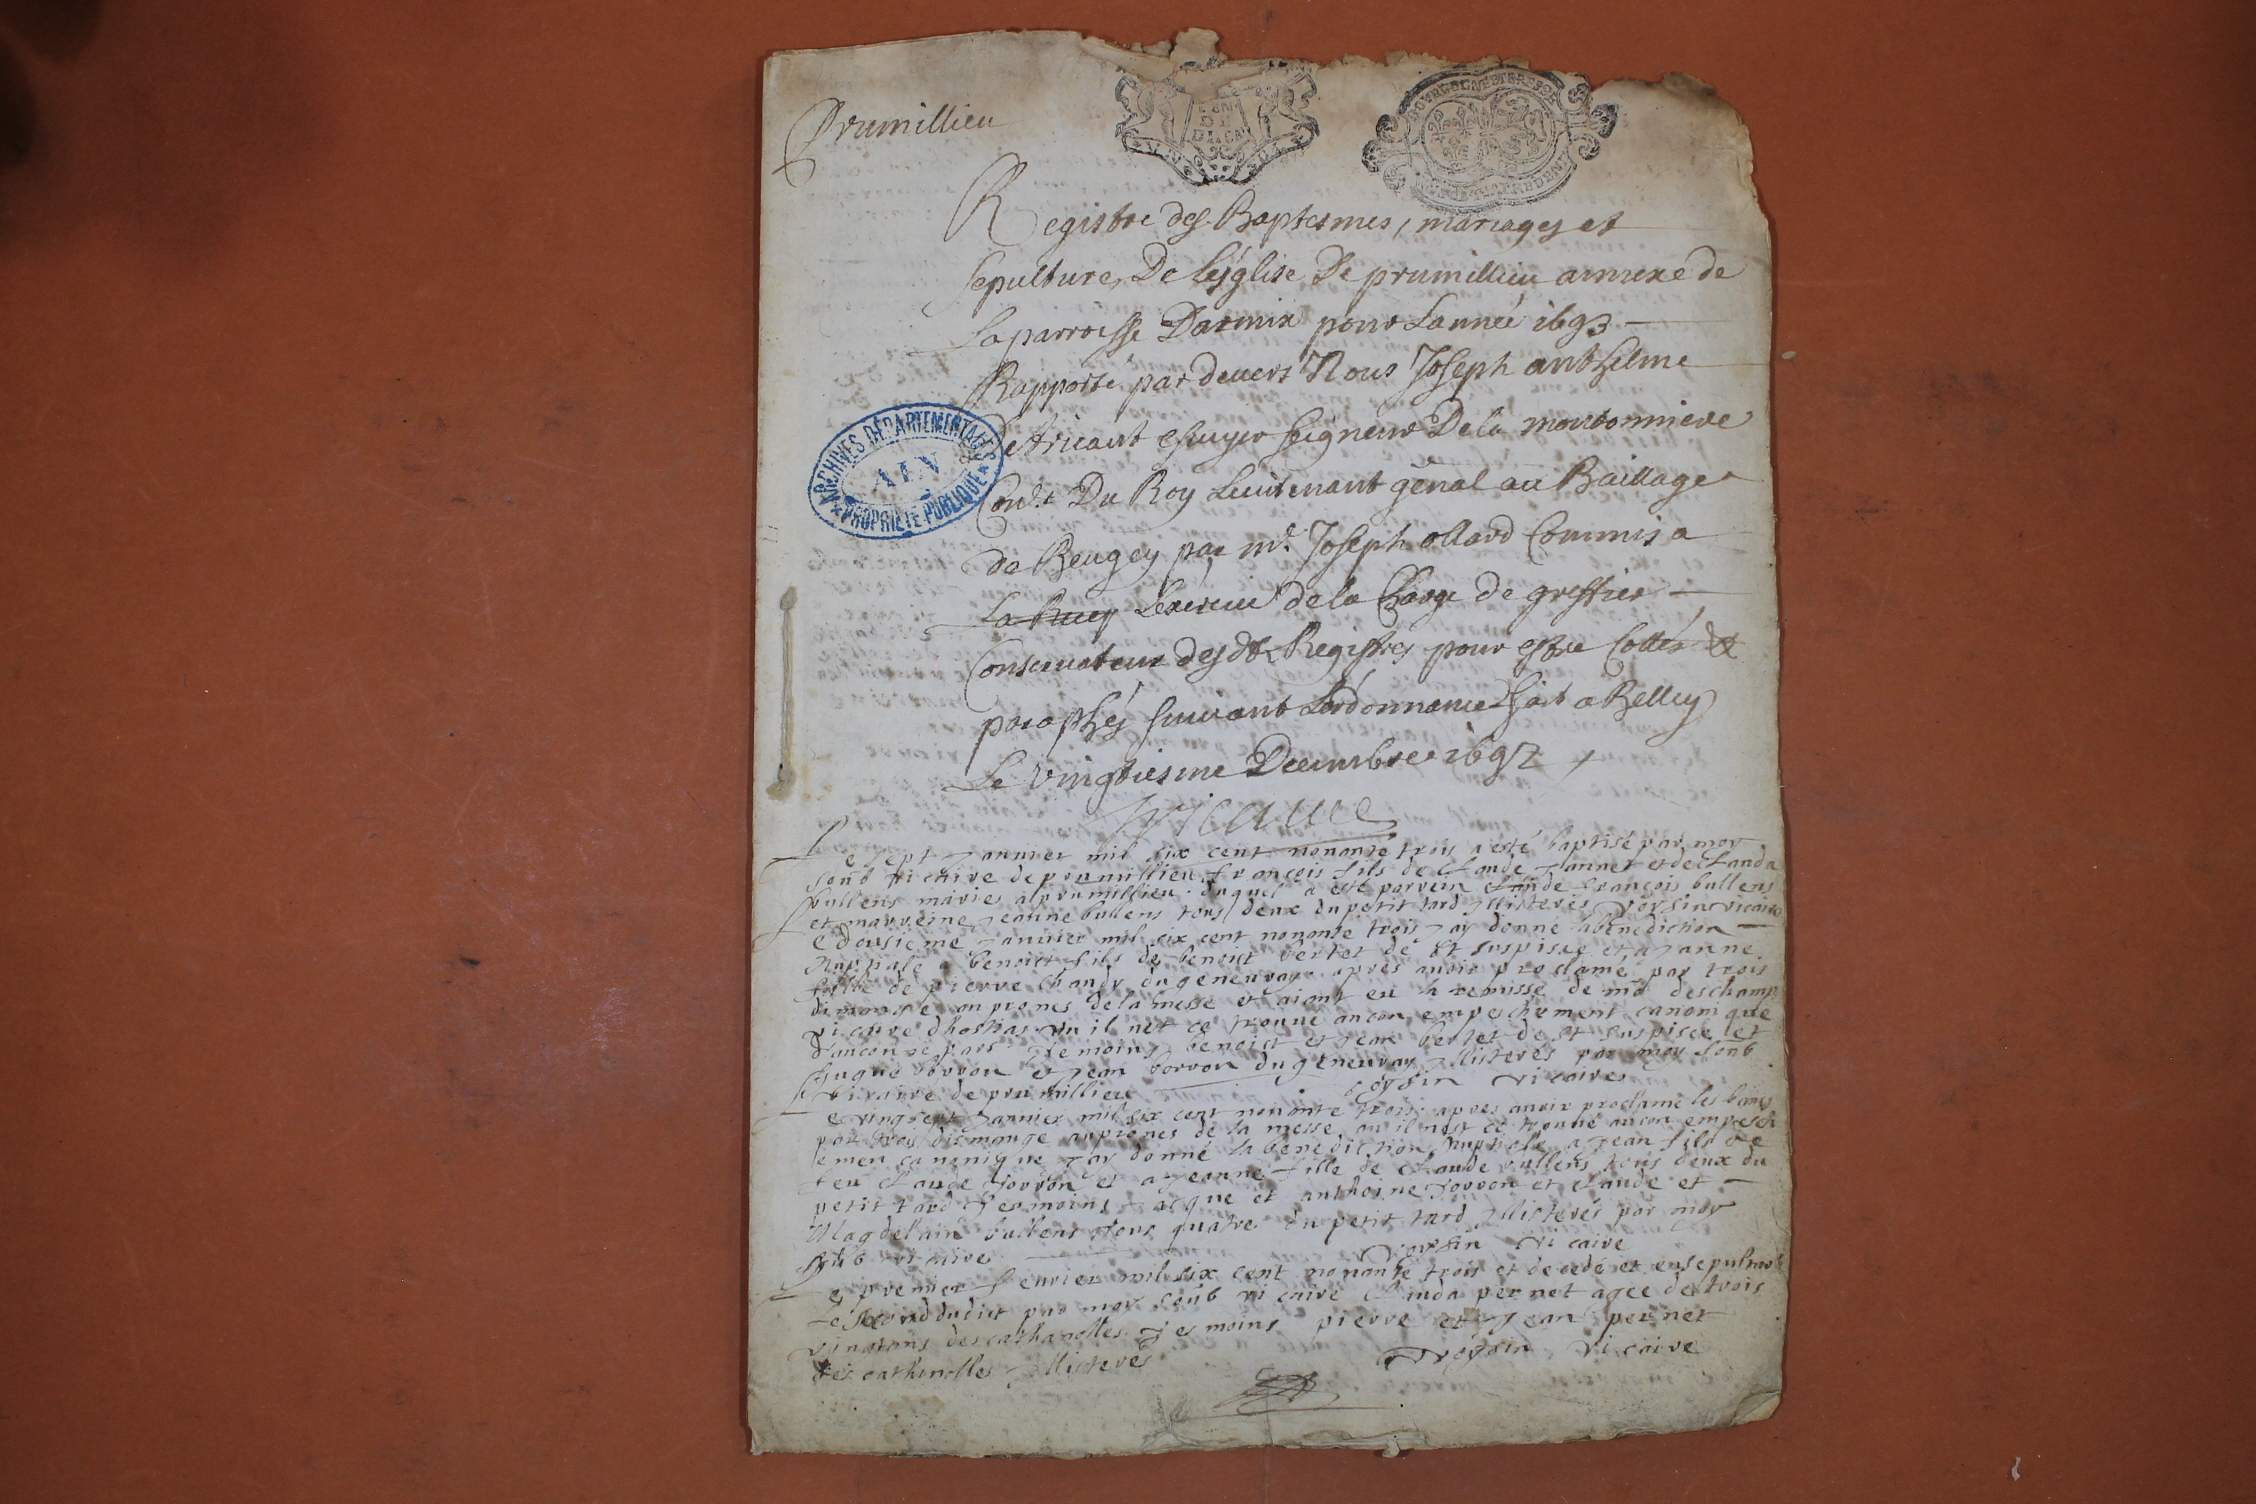 Prumillieu
BOVRGOGNE ET BRESSE
Registre des Baptesmes, mariages et
sepultures De Léglise De prumillieu annexe de
La parroisse Darmix pour Lannée 1693
Rapporté par devers Nous Joseph anthelme
De Tricaut escuyer seigneur De la
Cons.r Du Roy Lieutenant génal au Bailliage
de Beugey par m.e Joseph ollard Commis a
Lexercice de la Charge de greffier
Conservateur desdts Registres pour estre Cottés &
paraphés suivant Lordonnance fait a Belley
Le vingtiesme Decembre 1692
Tricaut
ARCHIVES DÉPARTEMENTALES
AIN
PROPRIÉTÉ PUBLIQUE
Le sept janvier mil six cent nonante trois a esté baptisé par moy
soub vicaire de prumillieu françois fils de Claude janner et de Clauda
bullens mariés a prumillieu duquel a esté parrein françois bullens
et marreine jeanne bullens tous deux du petit tard voysin vicaire
Le dousieme janvier mil six cent nonante trois jay donné la benediction
nuptiale a benoist fils de benoist bertet de st suspisce et a janne
fille de pierre du geneuray apres avoir proclamé par trois
dimange au prones de la messe et aiant eu la remisse de deschamp
vicaire dhostias ou il net ce trouve aucun empeschement canonique
daucone part temoins benoist et jean bertet de st suspisce et
hugue borron et jean borron du geneuray par moy soub
vicaire de prumillieu voysin vicaire
Le vingsept janvier mil six cent nonante trois apres avoir proclamé les bans
par trois dismange au prones de la messe ou il nest ce trouvé aucun empesch
emen canonique jay donné la benediction nuptiale a jean fils de
feu Claude jorron et a jeanne fille de Claude bullens tous deux du
petit tard temoins jacque et anthoine jorron et Claude et
Magdelain bullens tous quatre du petit tard par moy
soub vicaire voysin vicaire
Le premier fevrier mil six cent nonante trois et decedé et ensepulturé
Le second dudict par moy soub vicaire Clauda pernet agee de trois
vint ans des catharolles temoins pierre et jean pernet
des catharolles voysin vicaire